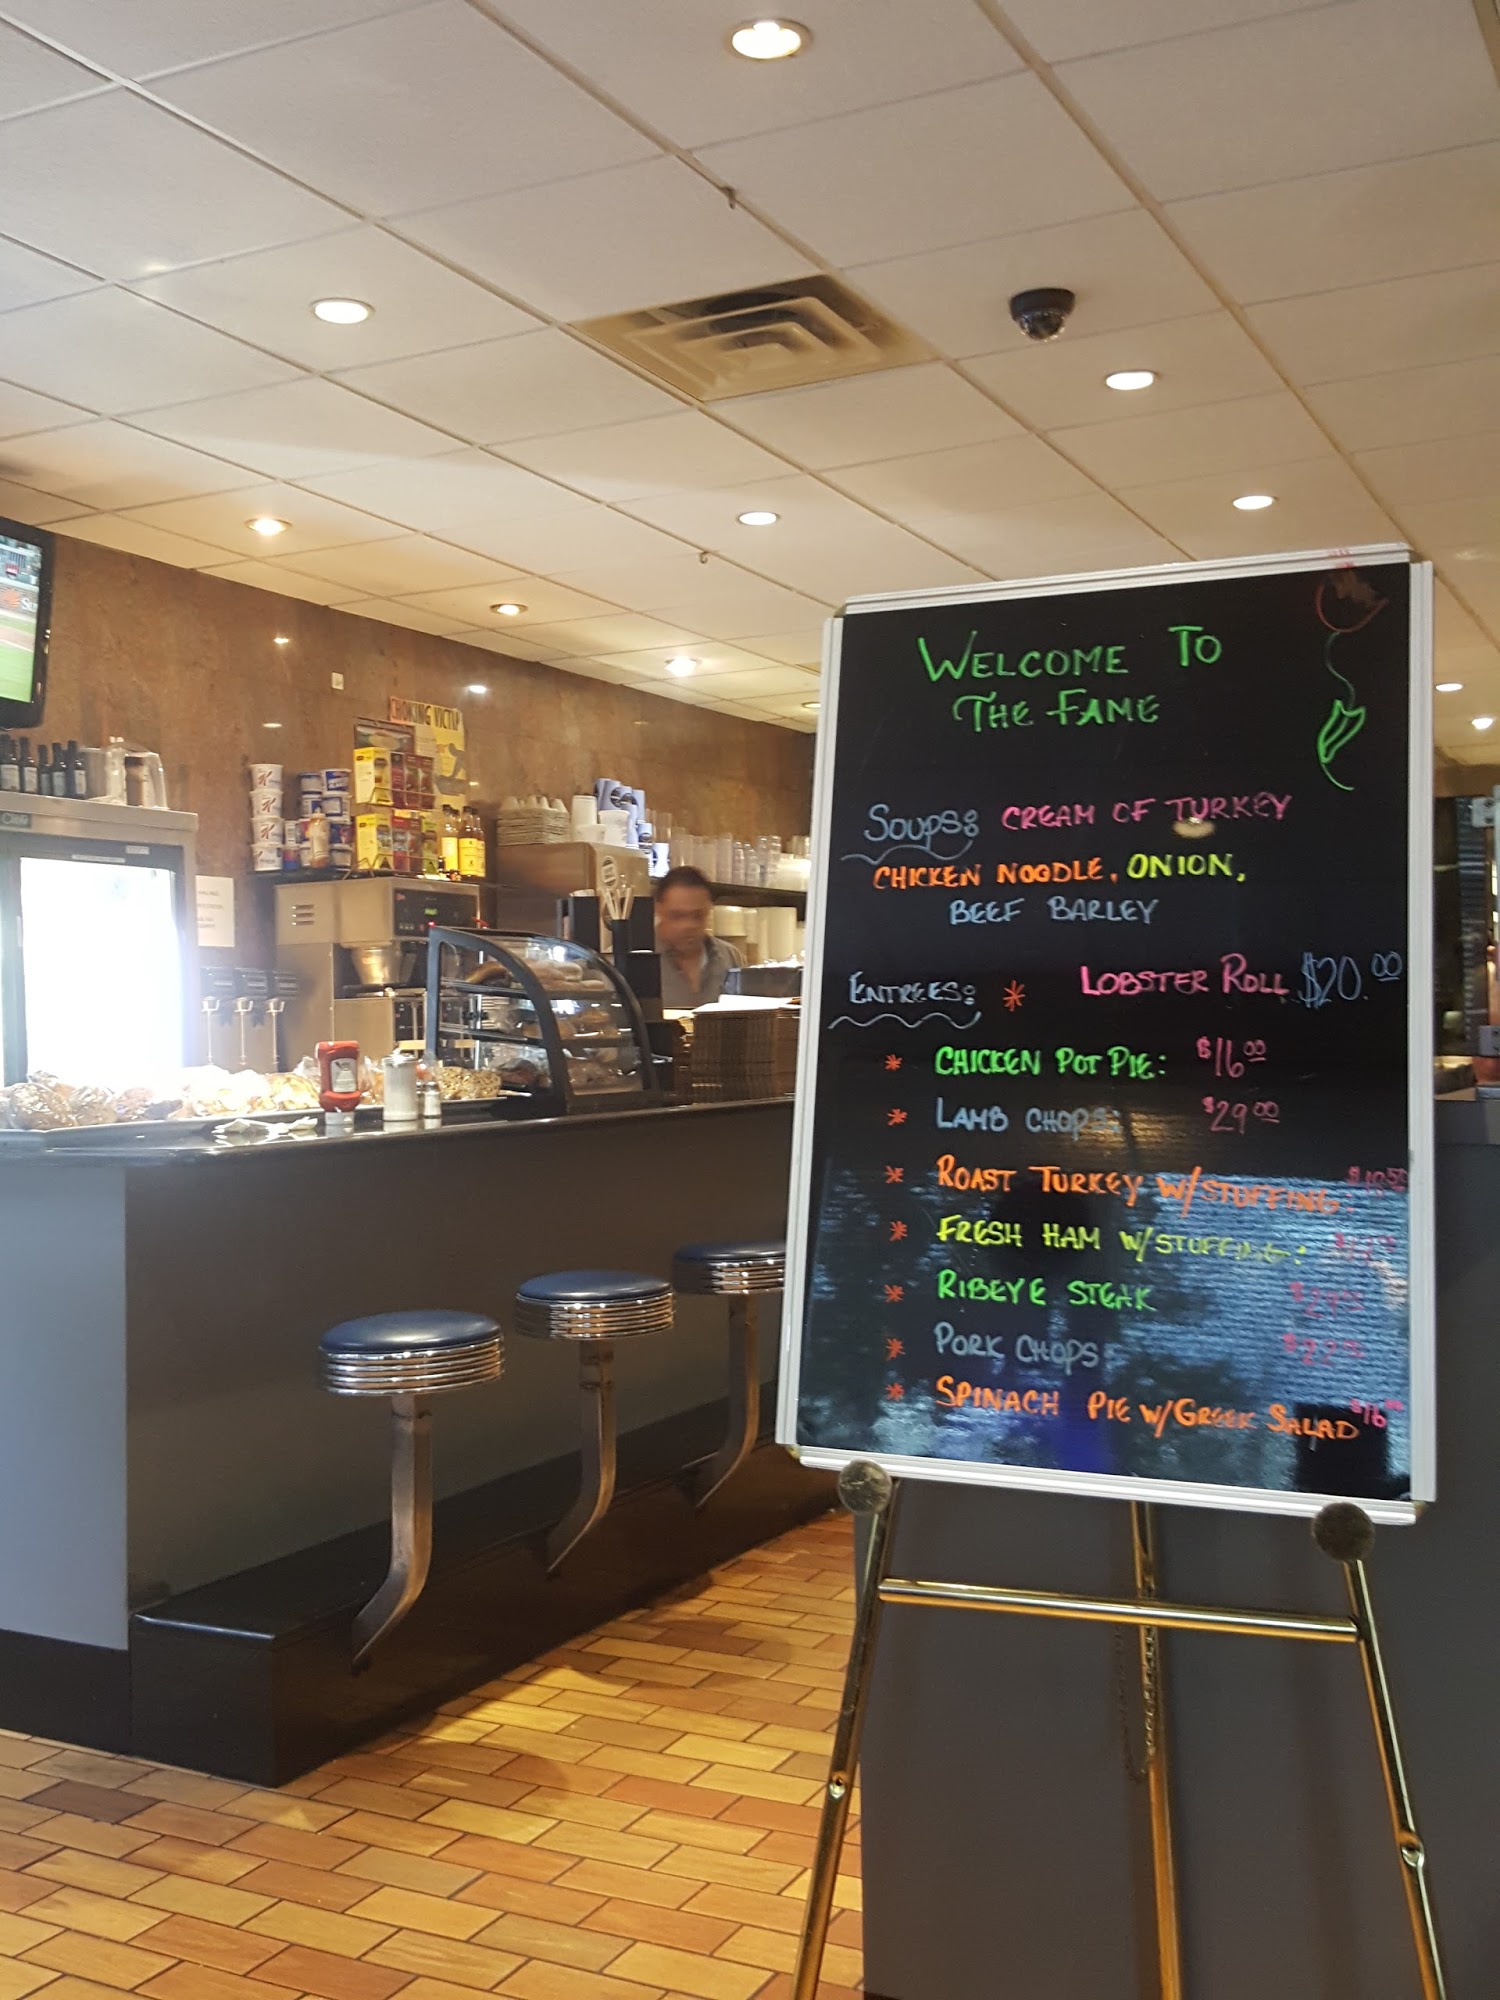 WELCOME TO
THE FAME
SOUPS: CREAM OF TURKEY
CHICKEN NOODLE, ONION,
BEEF BARLEY
ENTREES: * LOBSTER ROLL $20.00
* CHICKEN POT PIE: $16.00
* LAMB CHOPS: $29.00
* ROAST TURKEY W/STUFFING:
* FRESH HAM W/STUFFING:
* RIBEYE STEAK
* PORK CHOPS
* SPINACH PIE W/GREEK SALAD $16.00
CHOKING VICTIM
K
K
K